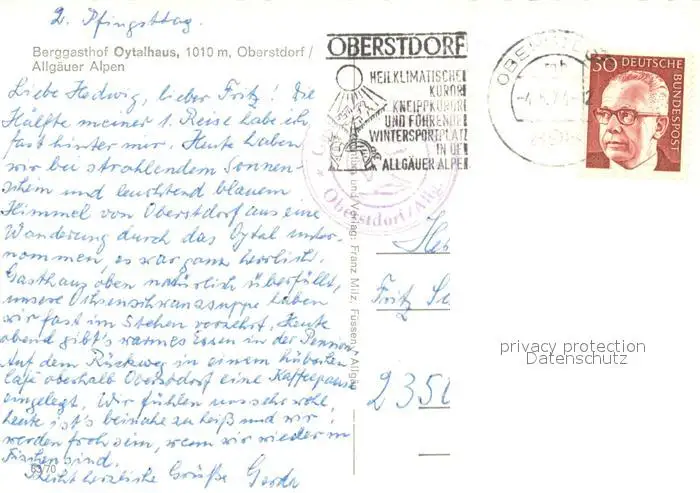 2. Pfingsttag.
Berggasthof Oytalhaus, 1010 m, Oberstdorf /
Allgäuer Alpen
Liebe Hedwig, lieber Fritz! Die
Hälfte meiner 1. Reise habe ich
fast hinter mir. Heute haben
wir bei strahlendem Sonnen-
schein und leuchtend blauem
Himmel von Oberstdorf aus eine
Wanderung durch das Oytal unter-
nommen, es war ganz herrlich.
Gasthaus oben natürlich überfüllt,
unsere Ochsenschwanzsuppe haben
wir fast im Stehen verzehrt. Heute
abend gibt's warmes Essen in der Pension.
Auf dem Rückweg in einem hübschen
Café oberhalb Oberstdorf eine Kaffeepause
eingelegt. Wir fühlen uns sehr wohl,
heute ist's beinahe zu heiß und wir
werden froh sein, wenn wir wieder in
Fischen sind.
63/70
Recht herzliche Grüße Gerda
OBERSTDORF
HEILKLIMATISCHER
KURORT
KNEIPPKURORT
UND FÜHRENDER
WINTERSPORTPLATZ
IN DEN
ALLGÄUER ALPEN
30 DEUTSCHE
BUNDESPOST
Oberstdorf/Allg
Verlag: Franz Milz, Füssen - Allgäu
Fritz
2350
privacy protection
Datenschutz